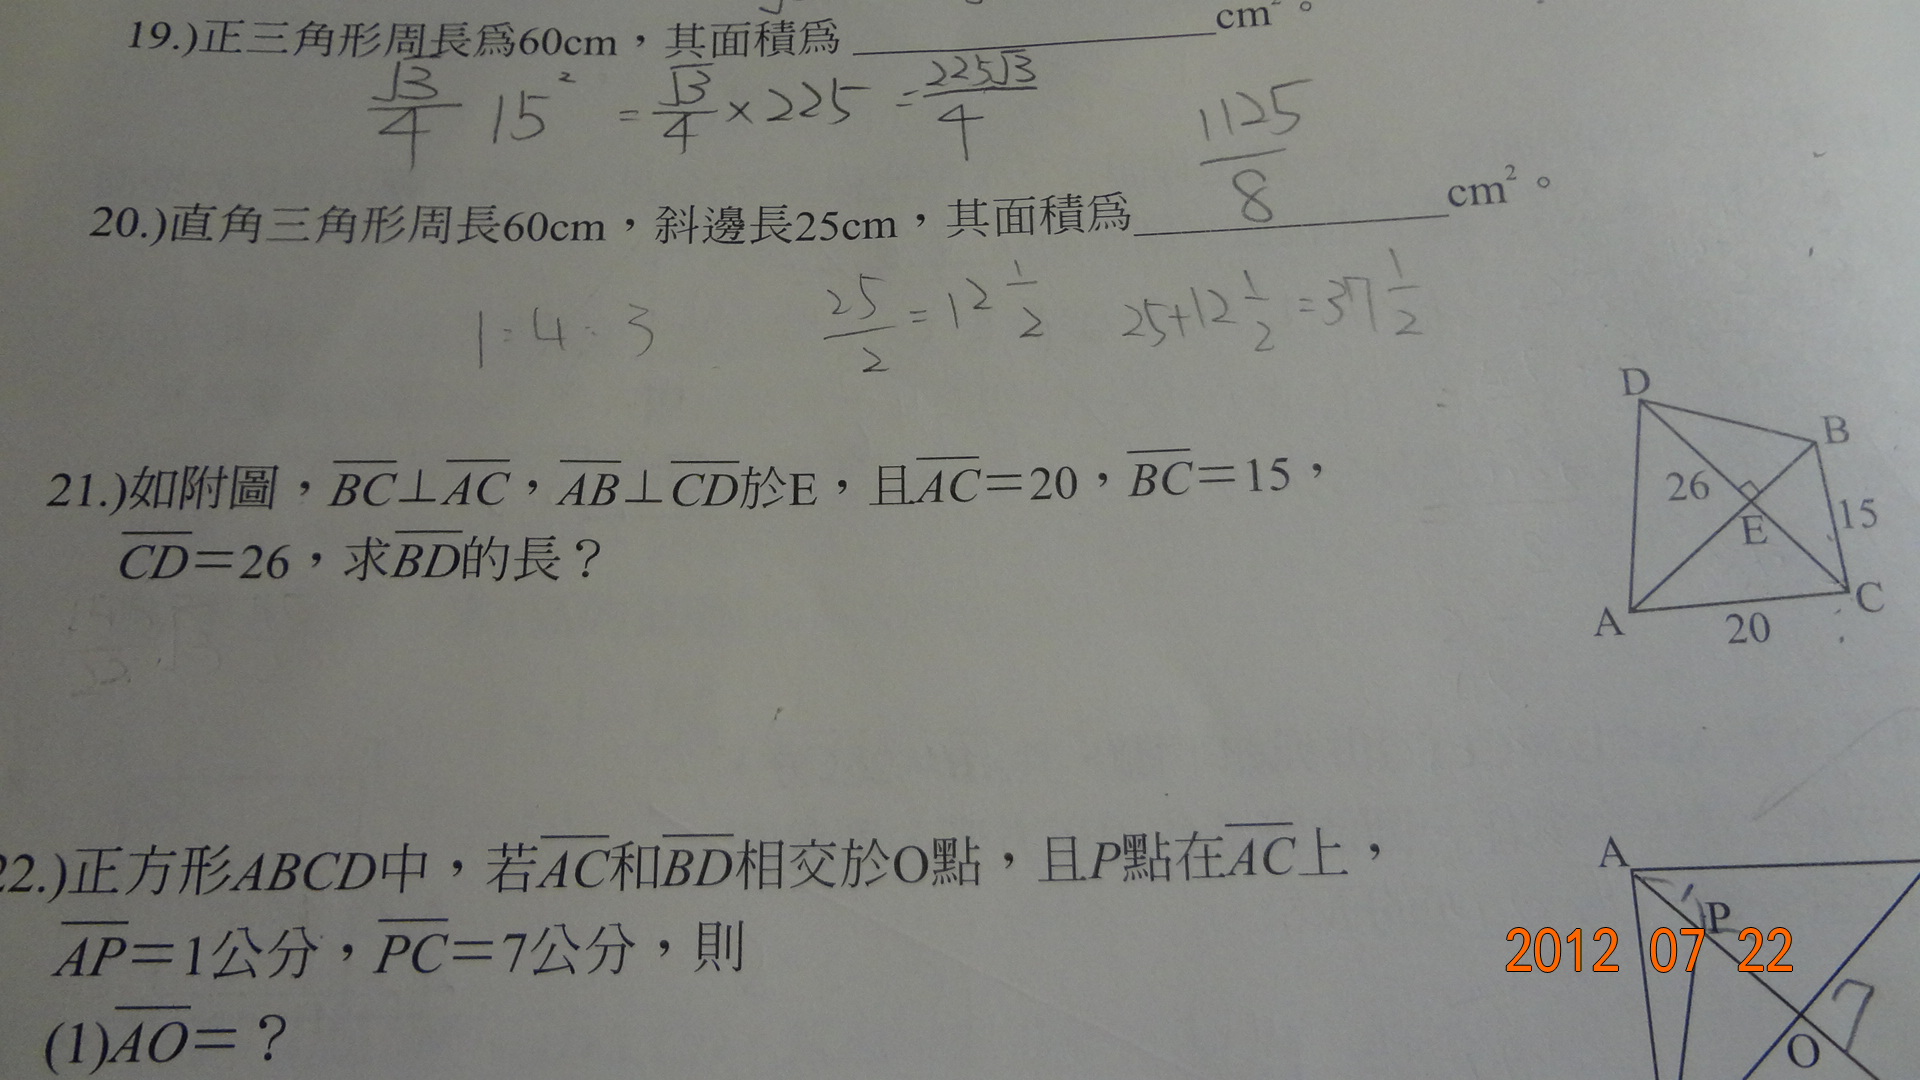 19.)正三角形周長爲60cm，其面積爲＿＿＿＿cm²。
√3/4 15² = √3/4 × 225 = 225√3/4
1125/8
20.)直角三角形周長60cm，斜邊長25cm，其面積爲＿＿＿＿cm²。
1:4:3 25/2 = 12 1/2 25+12 1/2 = 37 1/2
21.)如附圖，BC⊥AC，AB⊥CD於E，且AC＝20，BC＝15，
CD＝26，求BD的長？
D
B
26
E
15
A
20
C
22.)正方形ABCD中，若AC和BD相交於O點，且P點在AC上，
AP＝1公分，PC＝7公分，則
(1)AO＝？
A
1
P
7
O
2012 07 22